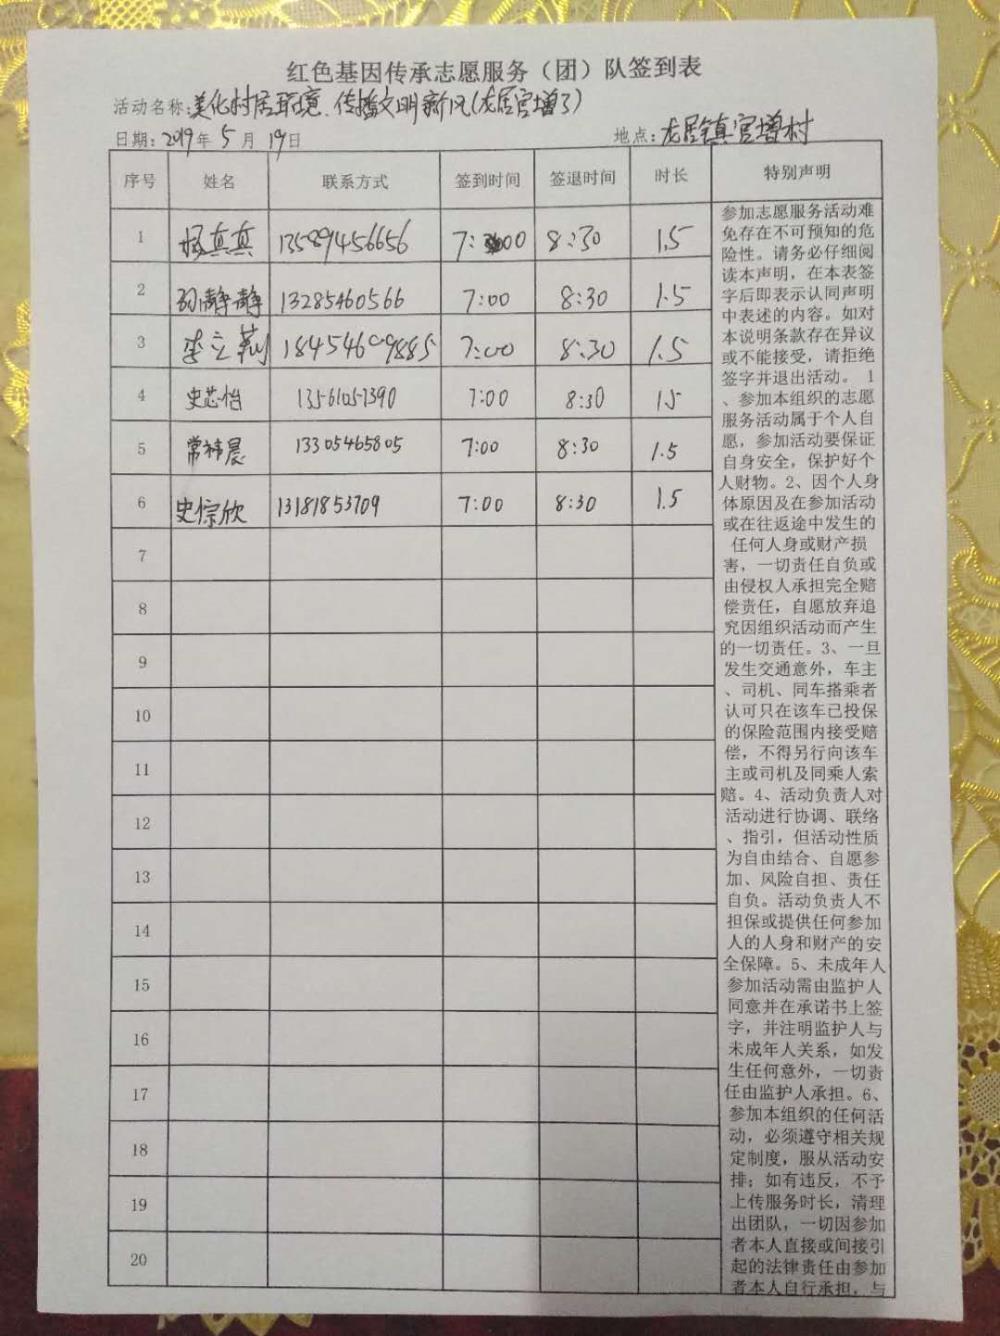 红色基因传承志愿服务（团）队签到表
活动名称:美化村居环境、传播文明新风(龙居官增了)
日期:2019年 5 月 19日 地点:龙居镇官增村
序号 姓名 联系方式 签到时间 签退时间 时长 特别声明
1 杨真真 13589456656 7:00 8:30 1.5
2 孙静静 13285460566 7:00 8:30 1.5
3 李立莉 18454609885 7:00 8:30 1.5
4 史芯怡 13561051390 7:00 8:30 1.5
5 常祎晨 13305465805 7:00 8:30 1.5
6 史惊欣 13181853709 7:00 8:30 1.5
7
8
9
10
11
12
13
14
15
16
17
18
19
20
参加志愿服务活动难
免存在不可预知的危
险性。请务必仔细阅
读本声明，在本表签
字后即表示认同声明
中表述的内容。如对
本说明条款存在异议
或不能接受，请拒绝
签字并退出活动。 1
、参加本组织的志愿
服务活动属于个人自
愿，参加活动要保证
自身安全，保护好个
人财物。2、因个人身
体原因及在参加活动
或在往返途中发生的
任何人身或财产损
害，一切责任自负或
由侵权人承担完全赔
偿责任，自愿放弃追
究因组织活动而产生
的一切责任。3、一旦
发生交通意外，车主
、司机、同车搭乘者
认可只在该车已投保
的保险范围内接受赔
偿，不得另行向该车
主或司机及同乘人索
赔。4、活动负责人对
活动进行协调、联络
、指引，但活动性质
为自由结合、自愿参
加、风险自担、责任
自负。活动负责人不
担保或提供任何参加
人的人身和财产的安
全保障。5、未成年人
参加活动需由监护人
同意并在承诺书上签
字，并注明监护人与
未成年人关系，如发
生任何意外，一切责
任由监护人承担。6、
参加本组织的任何活
动，必须遵守相关规
定制度，服从活动安
排；如有违反，不予
上传服务时长，清理
出团队，一切因参加
者本人直接或间接引
起的法律责任由参加
者本人自行承担，与